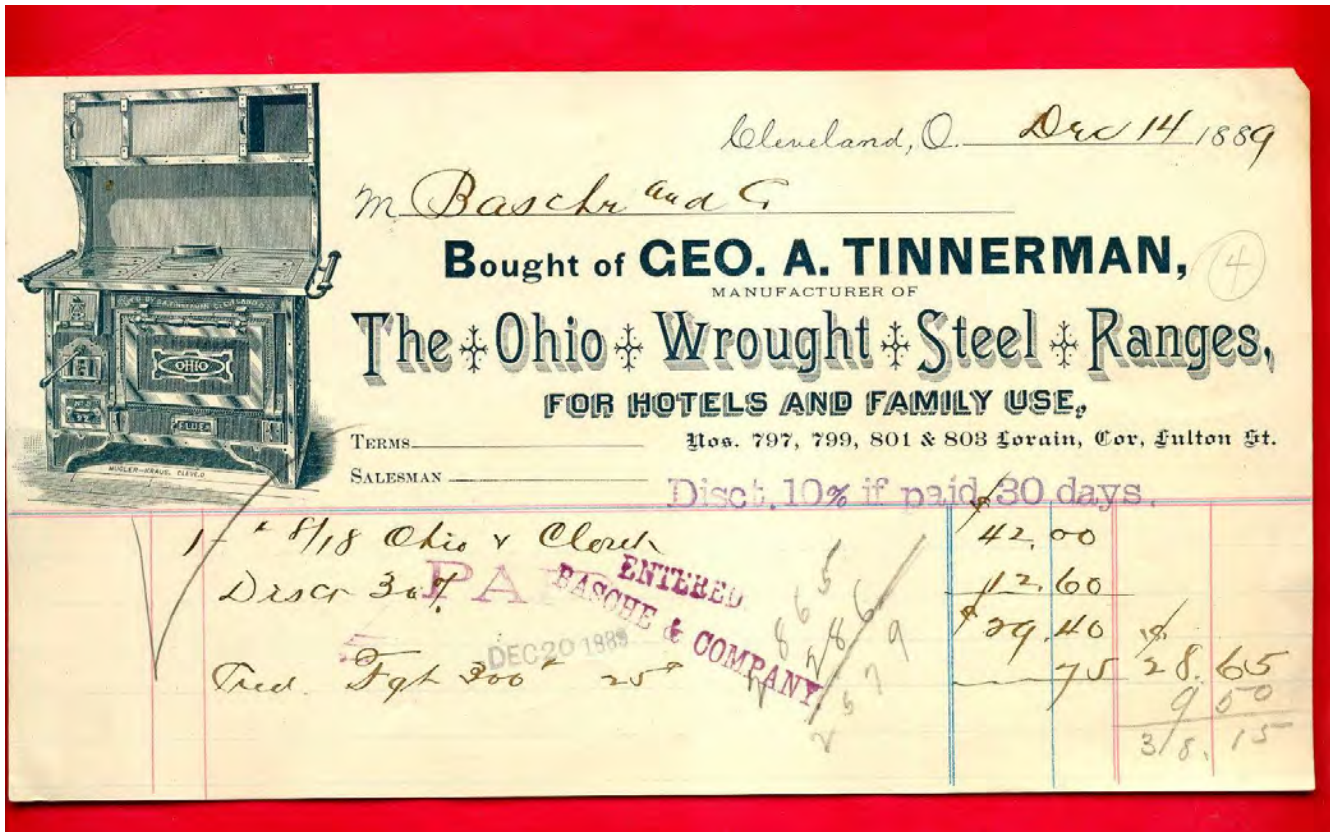 Cleveland, O. Dec 14 1889
M Basche and C
Bought of GEO. A. TINNERMAN,
4
MANUFACTURER OF
The Ohio Wrought Steel Ranges,
FOR HOTELS AND FAMILY USE,
TERMS
Nos. 797, 799, 801 & 803 Lorain, Cor, Fulton St.
SALESMAN
Disct. 10% if paid 30 days.
OHIO
FLUE
MUGLER-KRAUS, CLEVE.O
1 8/18 Ohio & Closet $42.00
Disct 30% 12.60
$29.40
Fgt 300# 25¢ 75 $28.65
9 50
38.15
PA
ENTERED
BASCHE & COMPANY
DEC 20 1889
2865
286
2579